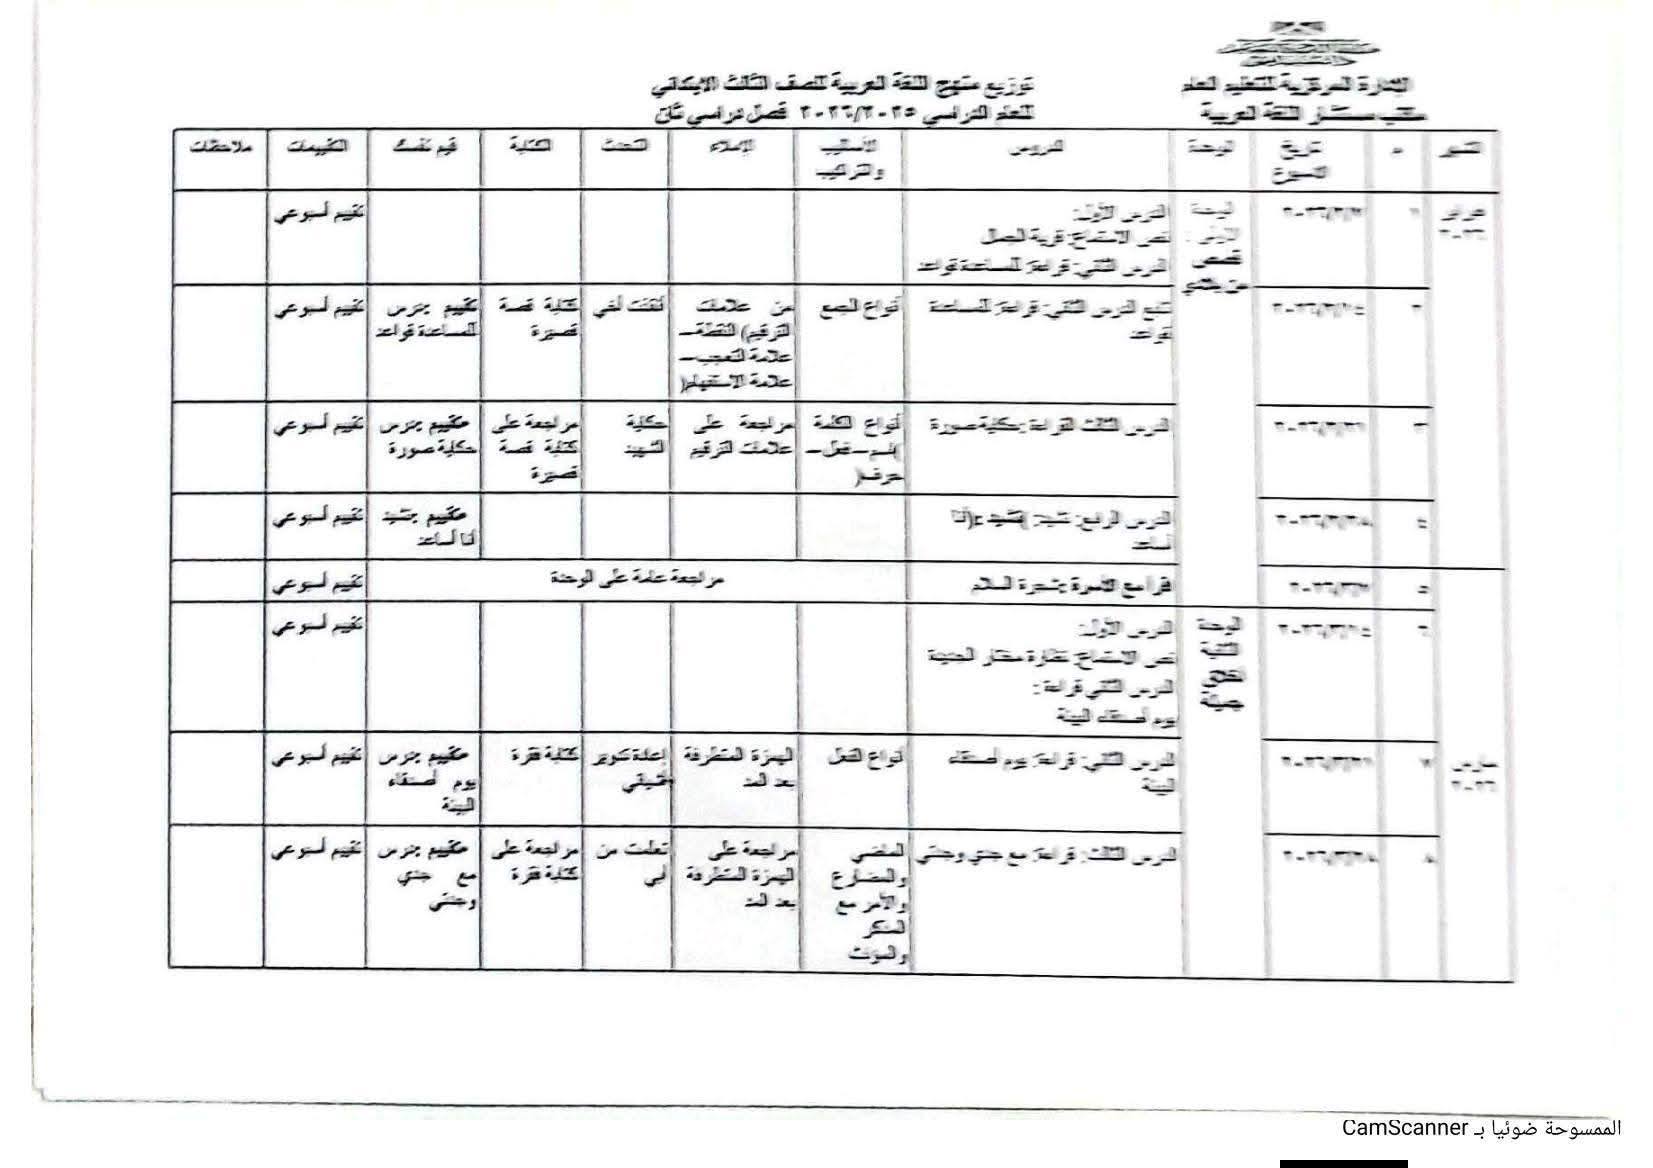 الإدارة المركزية للتعليم العام
مكتب مستشار اللغة العربية
توزيع منهج اللغة العربية للصف الثالث الابتدائي
للعام الدراسي ٢٠٢٥/٢٠٢٦ فصل دراسي ثان
الشهر م تاريخ الأسبوع الوحدة الدروس الأساليب والتراكيب الإملاء التحدث الكتابة قيم نفسك التقييمات ملاحظات
فبراير ٢٠٢٦
الوحدة الأولى: قصص من
١ الدرس الأول:
نص الاستماع: قرية الجمال
الدرس الثاني: قراءة: للمساعدة قواعد
تقييم أسبوعي
٢ تابع الدرس الثاني: قراءة: للمساعدة قواعد
أنواع الجمع
من علامات الترقيم) النقطة – علامة التعجب – علامة الاستفهام(
أنقذت أخي
كتابة قصة قصيرة
تقييم بدرس للمساعدة قواعد
تقييم أسبوعي
٣ الدرس الثالث القراءة: حكاية صورة
أنواع الكلمة )اسم – فعل – حرف(
مراجعة على علامات الترقيم
حكاية الشهيد
مراجعة على كتابة قصة قصيرة
تقييم بدرس حكاية صورة
تقييم أسبوعي
٤ الدرس الرابع: نشيد: أنا أساعد
تقييم بنشيد أنا أساعد
تقييم أسبوعي
مارس ٢٠٢٦
٥ اقرأ مع الأسرة: شجرة السلام
مراجعة عامة على الوحدة
تقييم أسبوعي
الوحدة الثانية أخلاق جميلة
٦ الدرس الأول:
نص الاستماع: نظارة مختار الجديدة
الدرس الثاني قراءة:
يوم أصدقاء البيئة
تقييم أسبوعي
٧ الدرس الثاني: قراءة: يوم أصدقاء البيئة
أنواع الفعل
الهمزة المتطرفة بعد المد
إعادة تدوير
كتابة فقرة
تقييم بدرس يوم أصدقاء البيئة
تقييم أسبوعي
٨ الدرس الثالث: قراءة: مع جدي وجدتي
الماضي والمضارع والأمر مع المذكر والمؤنث
مراجعة على الهمزة المتطرفة بعد المد
تعلمت من أبي
مراجعة على كتابة فقرة
تقييم بدرس مع جدي وجدتي
تقييم أسبوعي
الممسوحة ضوئيا بـ CamScanner